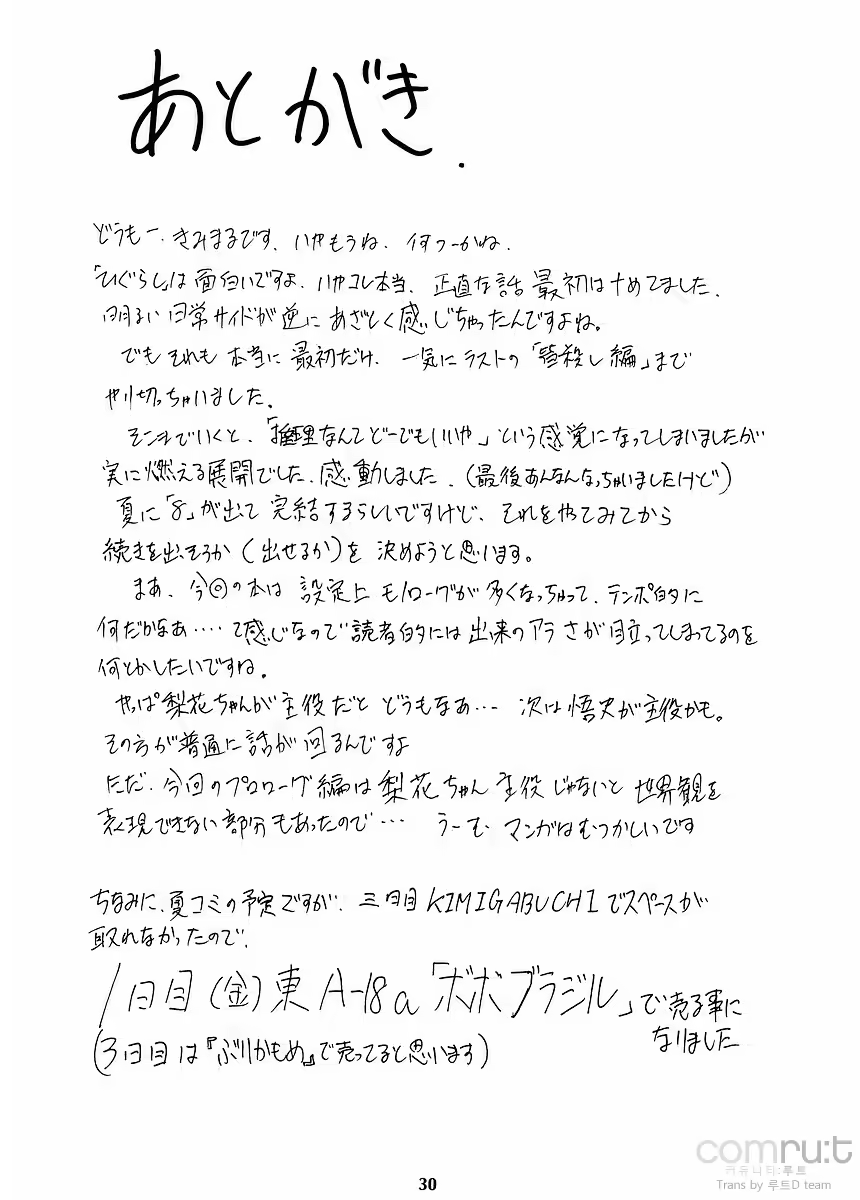 あとがき.
どうもー、きみまるです、いやもうね、何つーかね、
「ひぐらし」は面白いですよ、いやコレ本当、正直な話最初はナめてました、
明るい日常サイドが逆にあざとく感じちゃったんですよね。
でもそれも本当に最初だけ、一気にラストの「皆殺し編」まで
やり切っちゃいました。
そこまでいくと、「推理なんてどーでもいいや」という感覚になってしまいましたが
実に燃える展開でした、感動しました。(最後あんなんなっちゃいましたけど)
夏に「8」が出て完結するらしいですけど、それをやってみてから
続きを出そうか(出せるか)を決めようと思います。
まあ、今回の本は設定上モノローグが多くなっちゃって、テンポ的に
何だかなあ‥‥て感じなので読者的には出来のアラさが目立ってしまってるのを
何とかしたいですね。
やっぱ梨花ちゃんが主役だとどうもなあ… 次は悟史が主役かも。
その方が普通に話が回るんですよ
ただ、今回のプロローグ編は梨花ちゃん主役じゃないと世界観を
表現できない部分もあったので… うーむ、マンガはむつかしいです
ちなみに、夏コミの予定ですが、三日目KIMIGABUCHIでスペースが
取れなかったので、
1日目(金)東A-18a「ボボブラジル」で売る事に
なりました
(3日目は『ぶりかもめ』で売ってると思います)
comru:t
커뮤니티:루트
Trans by 루트D team
30